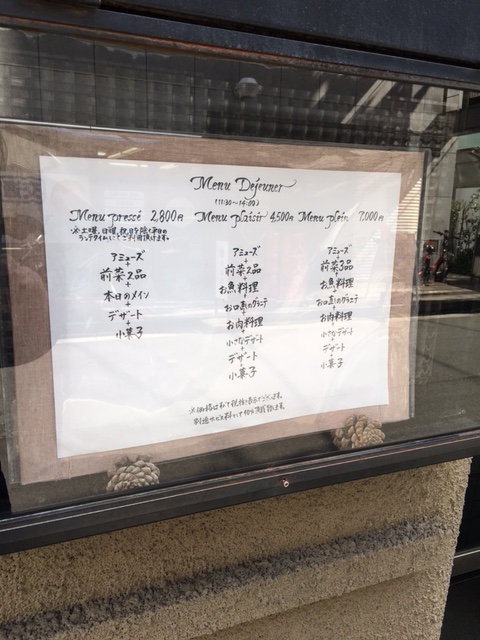 Menu Dejeuner
(11:30～14:00)
Menu pressé 2,800円
※土曜、日曜、祝日を除く平日の
ランチタイムにてご利用頂けます。
アミューズ
+
前菜2品
+
本日のメイン
+
デザート
+
小菓子
Menu plaisir 4,500円
アミューズ
+
前菜2品
+
お魚料理
+
お口直しのグラニテ
+
お肉料理
+
小さなデザート
+
デザート
+
小菓子
Menu plein 7,000円
アミューズ
+
前菜3品
+
お魚料理
+
お口直しのグラニテ
+
お肉料理
+
小さなデザート
+
デザート
+
小菓子
別途サービス料として10%頂戴致します。